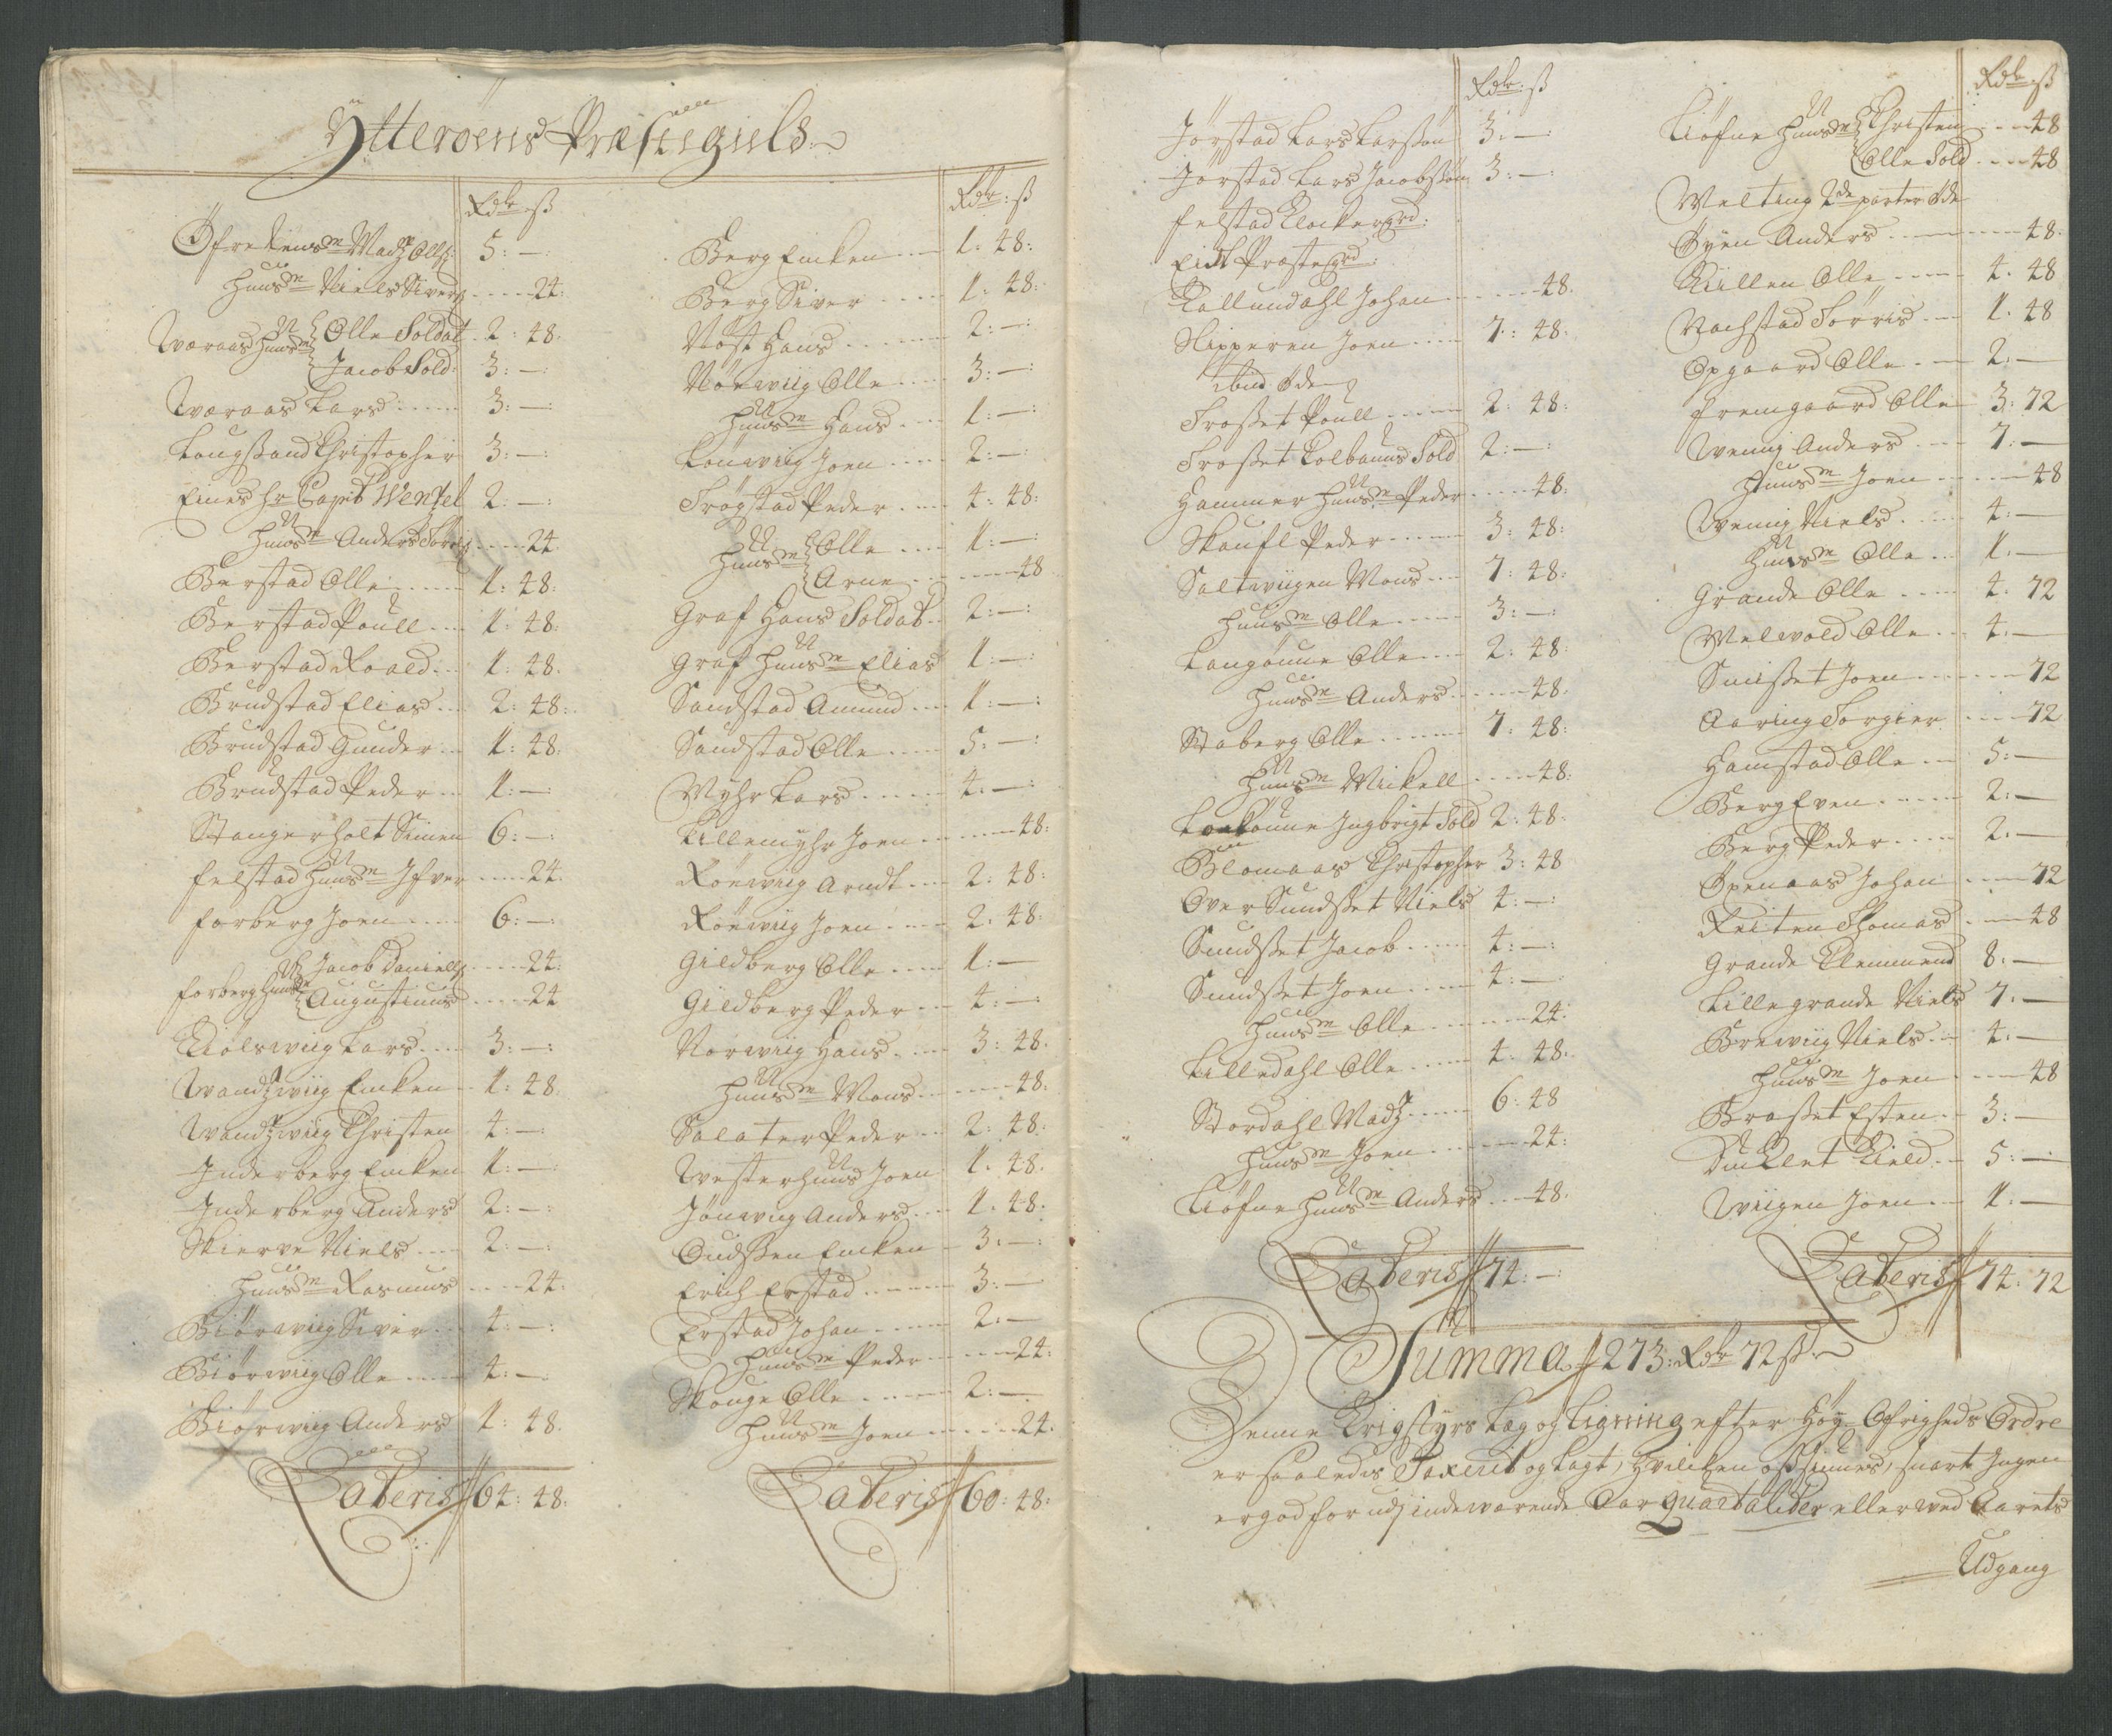 Ytterøens Præstegield:
Rdr: ß
Øfre Rens m Madz Ollß: 5: —:
Huusm Niels Siverß ---- 24:
Wæraas Huusm Olle Soldat 2: 48:
Jacob Sold: 3: —:
Wæraas Lars ---- 3: —:
Langsand Christopher 3: —:
Eines hr Capit Wentzel 2: —:
Huusm Anders Torriß ---- 24
Berstad Olle ---- 1: 48:
Berstad Poull ---- 1: 48:
Berstad Roald ---- 1: 48:
Brudstad Elias ---- 2: 48:
Brudstad Gunder ---- 1: 48:
Brudstad Peder ---- 1: —:
Stangerholt Simen 6: —:
Felstad Huusm Ifver ---- 24:
Forberg Joen ---- 6: —:
Forberg Huusm Jacob Daniellß ---- 24:
Augustinus ---- 24
Kiølswiig Lars ---- 3: —:
Wandzwiig Encken -- 1: 48:
Wandzwiig Christen 4: —:
Inderberg Encken 1: —:
Inderberg Anders 2: —:
Skierve Niels ---- 2: —:
Huusm Rasmus ---- 24:
Biørwiig Siver ---- 4: —:
Biørwiig Olle ---- 4: —:
Biørwiig Anders 1: 48:
Lateris 64: 48:
Rdr: ß
Berg Encken ---- 1: 48:
Berg Siver ---- 1: 48:
Nøst Hans ---- 2: —:
Nørwiig Olle ---- 3: —:
Huusm Hans ---- 1: —:
Lønwiig Joen ---- 2: —:
Trøgstad Peder ---- 4: 48:
Huusm Olle ---- 1: —:
Arne ---- 48
Graf Hans Soldat -- 2: —:
Graf Huusm Elias 1: —:
Sandstad Amund ---- 1: —:
Sandstad Olle ---- 5: —:
Myhr Lars ---- 4: —:
Lillemyhr Joen ---- 48:
Rønwiig Arndt ---- 2: 48:
Rønwiig Joen ---- 2: 48:
Gildberg Olle ---- 1: —
Gildberg Peder ---- 4: —:
Norwiig Hans ---- 3: 48:
Huusm Mons ---- 48:
Salater Peder ---- 2: 48:
Westerhuus Joen 1: 48:
Jønwiig Anders ---- 1: 48:
Oudssen Encken -- 3: —:
Erich Erstad ---- 3: —
Erstad Johan ---- 2: —
Huusm Peder ---- 24:
Skouge Olle ---- 2: —
Huusm Joen ---- 24:
Lateris 60: 48:
Rdr: ß
Jørstad Lars Larssøn 3: —:
Jørstad Lars Jacobssøn 3: —:
Felstad Klocker grd:
Eid Præste grd:
Kallundahl Johan ---- 48:
Slipperen Joen ---- 7: 48:
ibid Øde
Trosset Poull ---- 2: 48:
Trosset Kolbanus Sold 2: —:
Hammer Huusm Peder ---- 48:
Skaufl Peder ---- 3: 48:
Saltwiigen Mons ---- 7: 48:
Huusm Olle ---- 3: —:
Langøune Olle ---- 2: 48:
Huusm Anders ---- 48:
Staberg Olle ---- 7: 48:
Huusm Mickell ---- 48:
Ingbrigt Sold 2: 48:
Blomaas Christopher 3: 48
Over Sundsset Niels 4: —:
Sundsset Jacob ---- 4: —:
Sundsset Joen ---- 4: —:
Huusm Olle ---- 24:
Lilledahl Olle ---- 4: 48:
Stordahl Madz ---- 6: 48
Huusm Joen ---- 24:
Liøfne Huusm Anders ---- 48:
Lateris 74: —:
Rdr: ß
Liøfne Huusm Christen ---- 48
Olle Sold ---- 48
Welting 2de parter Øde
Øyen Anders ---- 48:
Killen Olle ---- 4: 48
Nachstad Torris ---- 1: 48
Opgaard Olle ---- 2: —
Fremgaard Olle 3: 72
Wennig Anders ---- 7: —
Huusm Joen ---- 48
Wennig Niels ---- 4: —
Huusm Olle ---- 1: —
Grande Olle ---- 4: 72
Welwold Olle ---- 4: —
Snisset Joen ---- 72
Aaring Torgier ---- 72
Hamstad Olle ---- 5: —
Berg Even ---- 2: —
Berg Peder ---- 2: —
Øpenaas Johan ---- 72
Reiten Thomas ---- 48
Grande Klemmend 8: —
Lille grande Niels 7: —
Brewiig Niels ---- 4: —
Huusm Joen ---- 48
Brosset Esten ---- 3: —
Duklet Kield ---- 5: —
Wiigen Joen ---- 1: —
Lateris 74: 72
Summa 273: Rdr 72 ß
Denne Krigstyrs Læg og Ligning efter Høy-Øfrigheds Ordre
er saaledis Taxerit og lagt, Hvilcken oß synnes, snart Ingen
er god for udj indewærende Aar quartaliter eller ved Aarets
Udgang